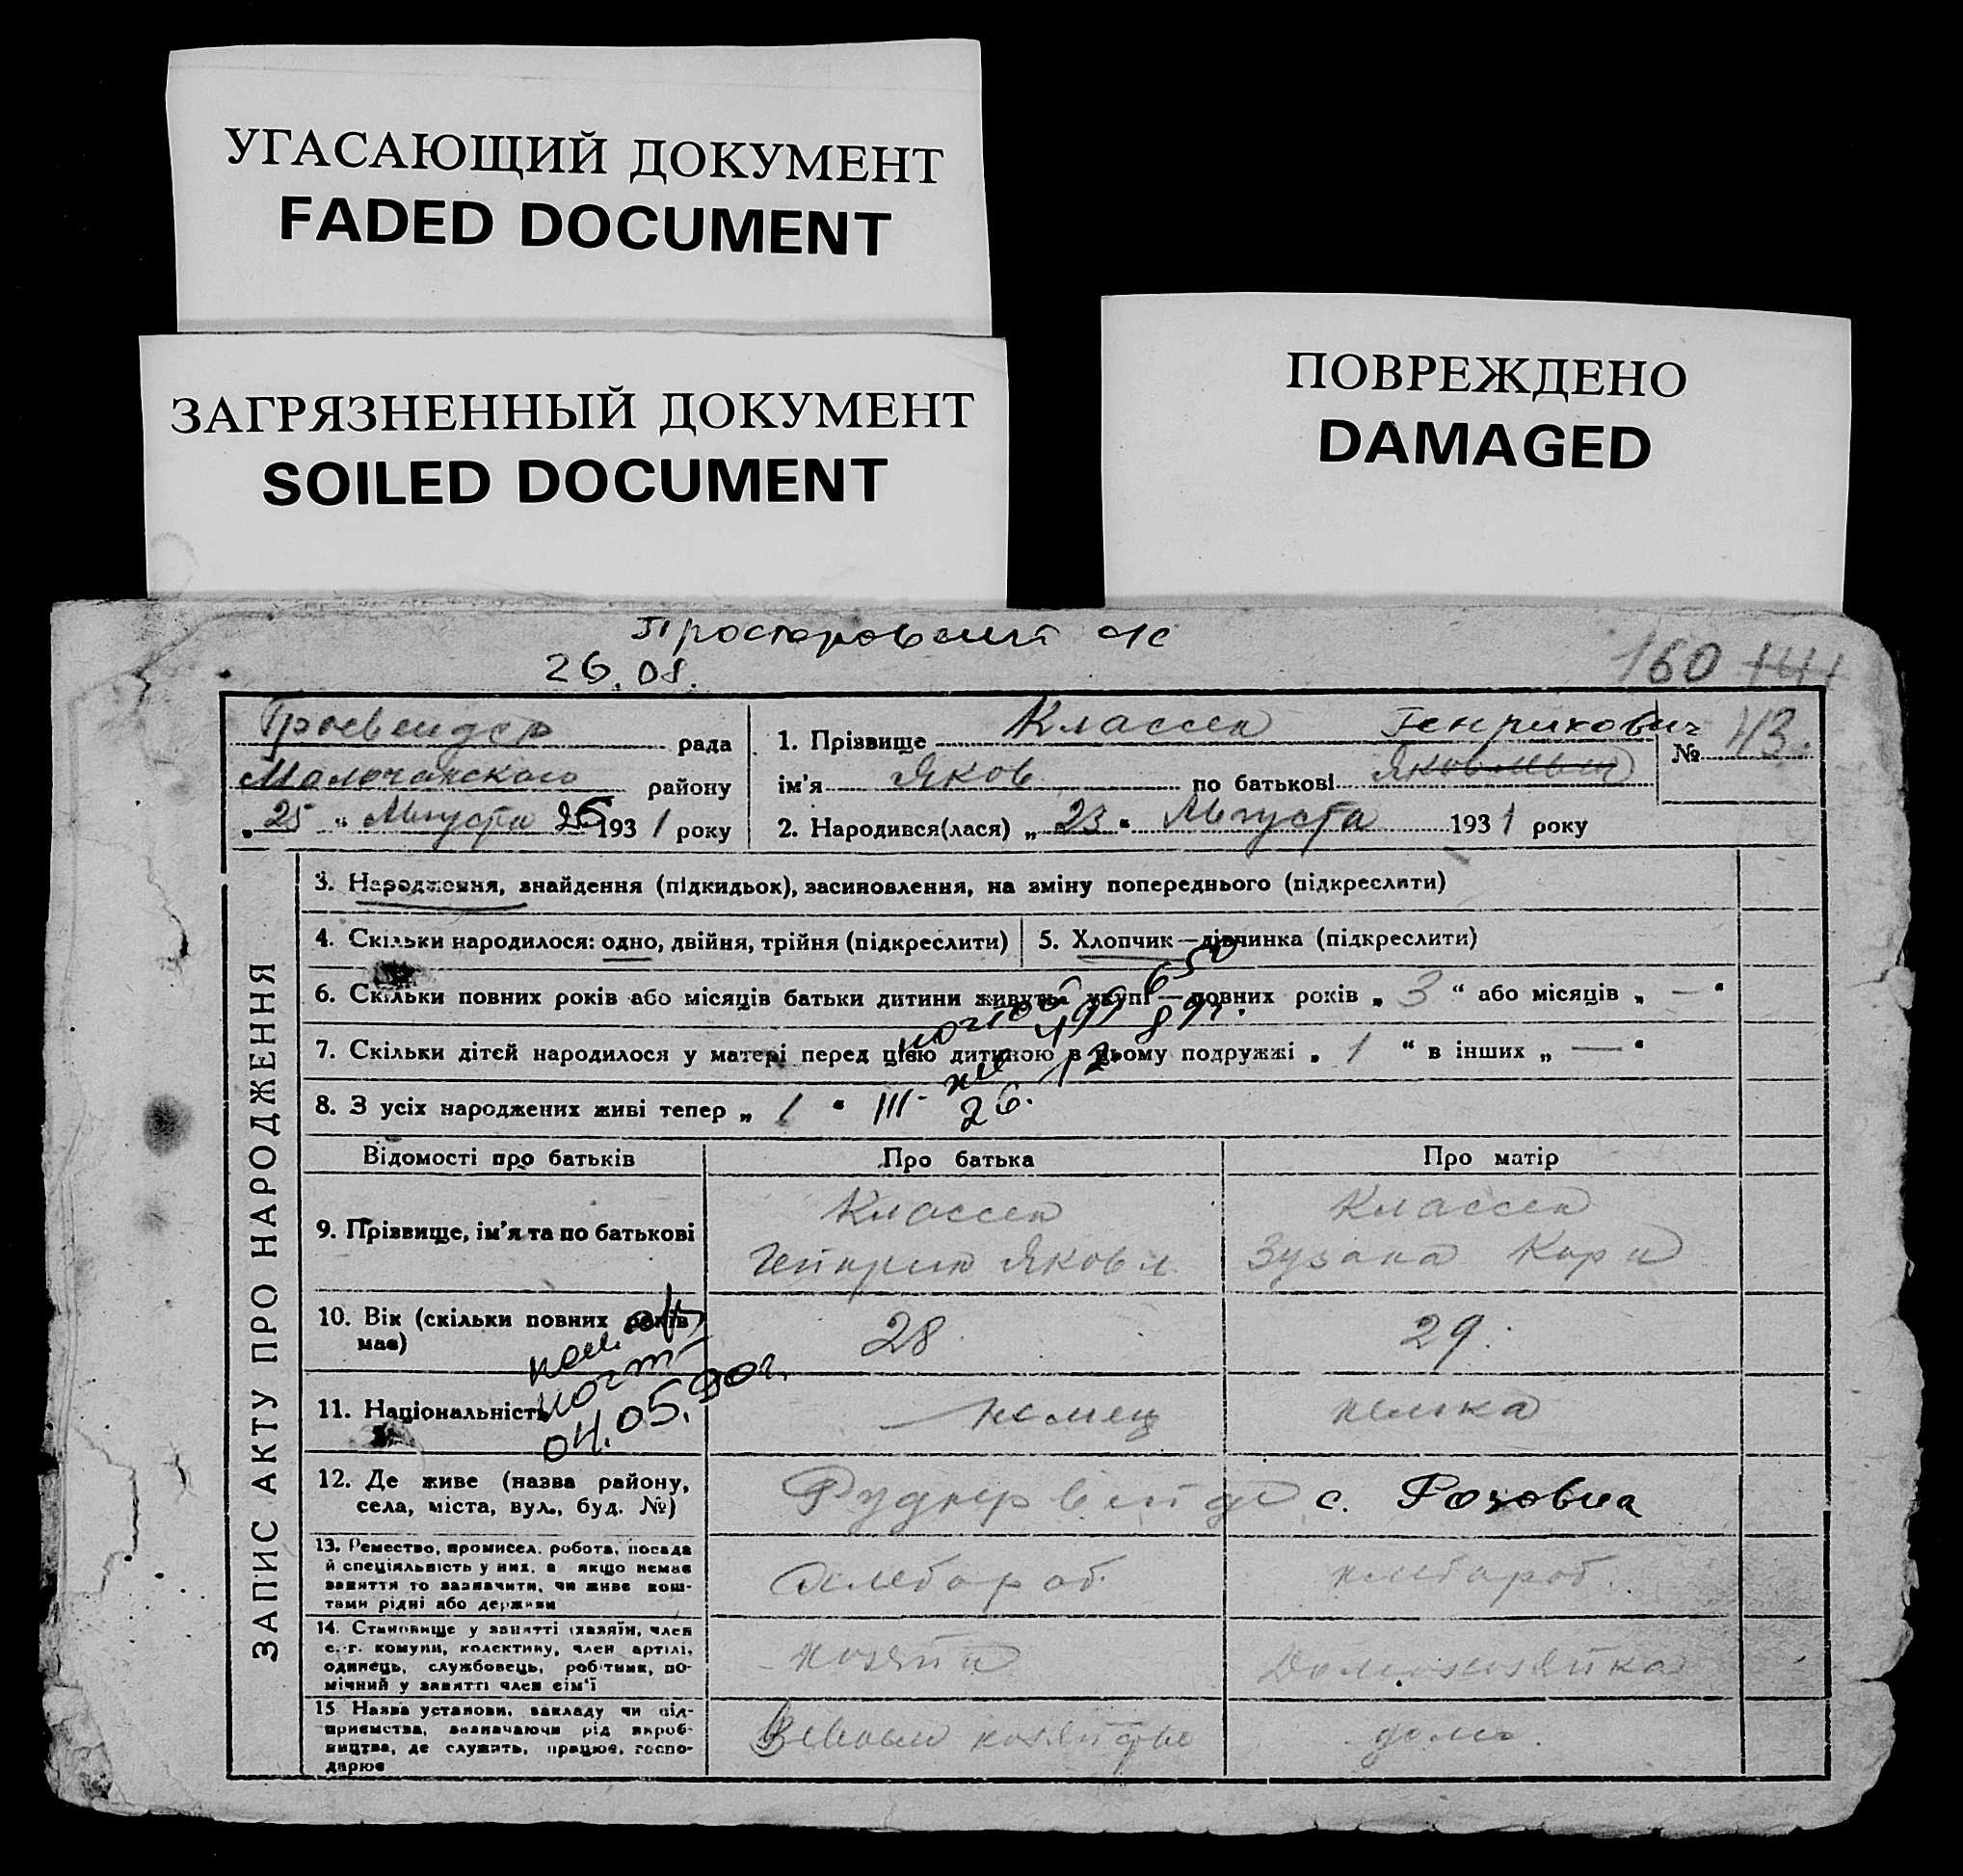 УГАСАЮЩИЙ ДОКУМЕНТ
FADED DOCUMENT
ЗАГРЯЗНЕННЫЙ ДОКУМЕНТ
SOILED DOCUMENT
ПОВРЕЖДЕНО
DAMAGED
26.08.
160
рада
Молочанского району
„ 25 “ Августа 1931 року
1. Прізвище Классен Генрихович
ім'я Яков по батькові
№ 43.
2. Народився(лася) „ 23 “ Августа 1931 року
ЗАПИС АКТУ ПРО НАРОДЖЕННЯ
3. Народження, знайдення (підкидьок), засиновлення, на зміну попереднього (підкреслити)
4. Скільки народилося: одно, двійня, трійня (підкреслити)
5. Хлопчик—дівчинка (підкреслити)
6. Скільки повних років або місяців батьки дитини живуть укупі — повних років „ 3 “ або місяців „ — “
7. Скільки дітєй народилося у матері перед цією дитиною в цьому подружжі „ 1 “ в інших „ — “
8. З усіх народжених живі тепер „ 1 “
26.
Відомості про батьків
Про батька
Про матір
9. Прізвище, ім'я та по батькові
Классен
Генрих Яковл
Классен
Зузана Кор
10. Вік (скільки повних років має)
28
29.
11. Національність
04.05.90г.
немец
немка
12. Де живе (назва району,
села, міста, вул., буд. №)
Руднервейде с. Розовка
13. Ремество, промисел, робота, посада
й спеціяльність у них, а якщо немає
заняття то зазначити, чи живе кош-
тами рідні або держави
хлебороб.
хлебороб.
14. Становище у занятті (хазяїн, член
с.-г. комуни, колективу, член артілі,
одинець, службовець, робітник, по-
мічний у занятті член сім'ї
хозяин
Домохозяйка
15. Назва установи, закладу чи під-
приємства, зазначаючи рід вироб-
ництва, де служить, працює, госпо-
дарює
В своем хозяйстве